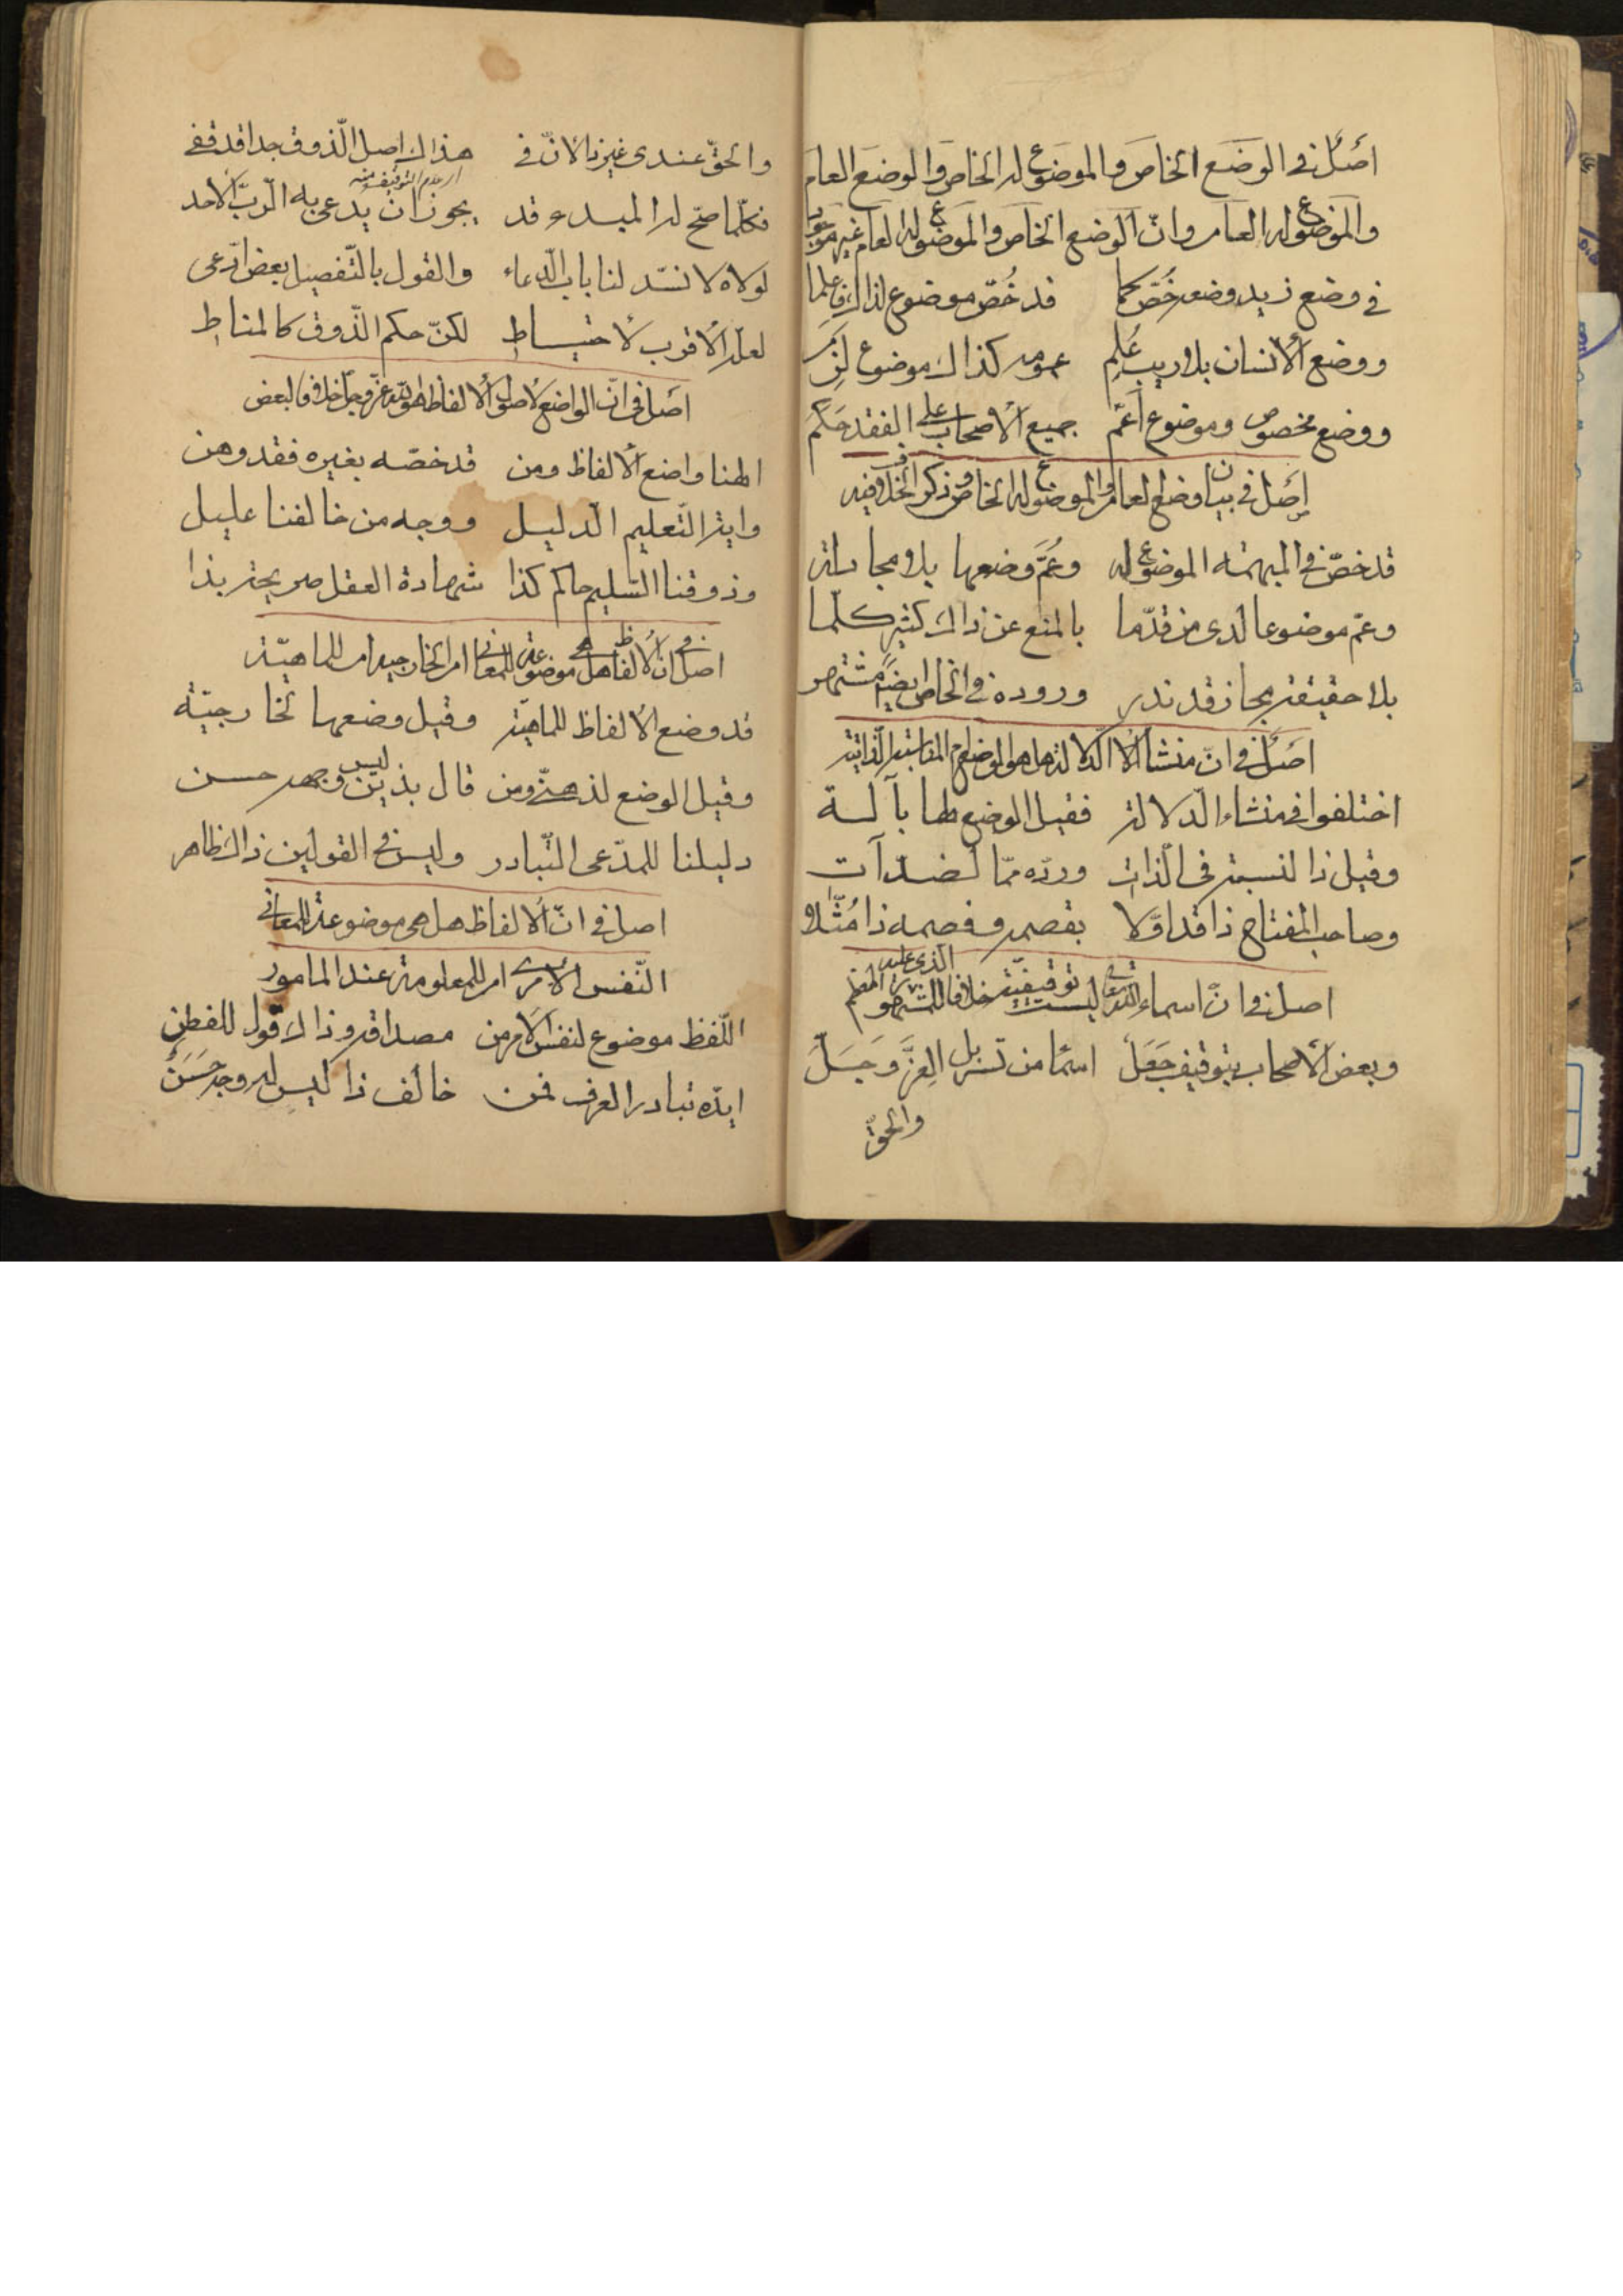 اصل في الوضع الخاص والموضوع له الخاص والوضع العام
والموضوع له العام وان الوضع الخاص والموضوع له العام غير موجود
في وضع زيد وضعه خص كما قد خص موضوع لذاك فاعلما
ووضع الأنسان بلا ريب علم عمومه كذاك موضوع
ووضع مخصوص وموضوع أعم جميع الأصحاب على الفقد حكم
اصل في بيان وضع العام والموضوع له الخاص وذكر الخلاف فيه
قد خص في المبهمة الموضوع له وعم وضعها بلا مجادلة
وعم موضوعا لدى من قدما بالمنع عن ذاك كثير كلما
بلا حقيقة مجاز قد ندر وروده في الخاص ايضا مشتهر
اصل في ان منشأ الدلالة هل هو الوضع ام المناسبة الذاتية
اختلفوا في منشاء الدلالة فقيل الوضع لها بآلة
وقيل ذا لنسبة في الذات ورده مما لضد آت
وصاحب المفتاح ذا قد اولا بقصمه وفصمه ذا مثلا
اصل في ان اسماء الله تعالى ليست توقيفية خلافا للمشهور الذي عليه المعظم
وبعض الأصحاب بتوقيف جعل اسما من تسربل العز وجل
والحق
والحق عندي غير ذا لأن في هذاك اصل الذوق جدا قد قفي
اي عدم التوقيف منه
فكلما صح له المبدء قد يجوز ان يدعى به الرب الأحد
لولاه لانسد لنا باب الدعاء والقول بالتفصيل بعض ادعى
لعله الأقرب لأحتياط لكن حكم الذوق كالمناط
اصل في ان الواضع لأصول الألفاظ هو الله عز وجل خلافا لبعض
الهنا واضع الألفاظ ومن قد خصه بغيره فقد وهن
وايد التعليم الدليل ووجه من خالفنا عليل
وذوقنا السليم حاكم كذا شهادة العقل صريحة بذا
اصل في ان الألفاظ هل هي موضوعة للمعاني الخارجية ام للماهية
قد وضع الألفاظ للماهية وقيل وضعها لخارجية
وقيل الوضع لذهني ومن قال بذين ليس وجهه حسن
دليلنا للمدعى التبادر وليس في القولين ذاك ظاهر
اصل في ان الألفاظ هل هي موضوعة للمعاني
النفس الأمري ام للمعلومة عند المأمور
اللفظ موضوع لنفس الأمر من مصداقه وذاك قول للفطن
ايده تبادر العرف فمن خالف ذا ليس له وجه حسن